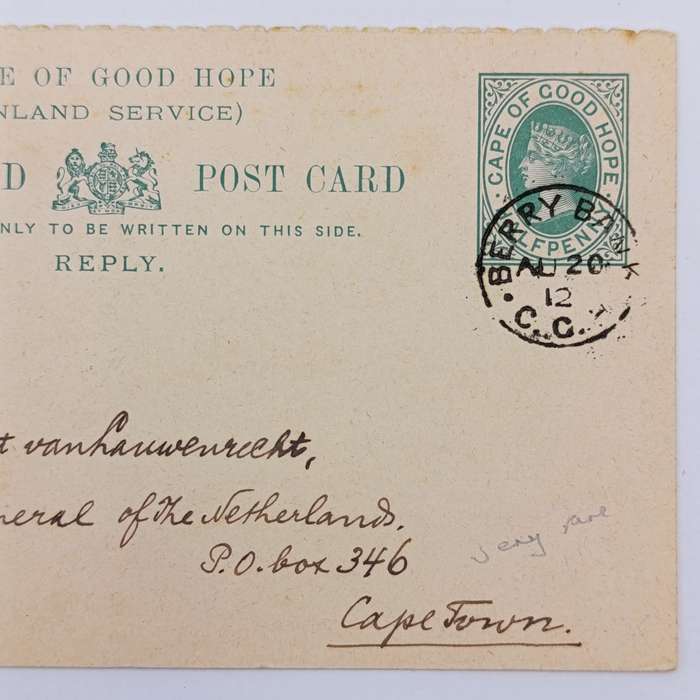 E OF GOOD HOPE
NLAND SERVICE)
D POST CARD
NLY TO BE WRITTEN ON THIS SIDE.
REPLY.
CAPE OF GOOD HOPE
HALFPENNY
BERRY BANK
AU 20
12
C.G.H
t vanhauwenrecht,
neral of the Netherlands.
P.O. box 346
Cape Town.
very rare